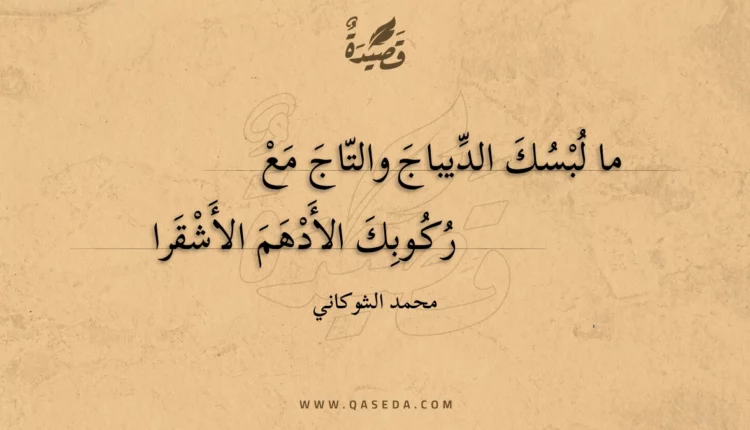 قَصِيْدَةٌ
ما لُبْسُكَ الدِّيباجَ والتّاجَ مَعْ
رُكُوبِكَ الأَدْهَمَ الأَشْقَرا
محمد الشوكاني
WWW.QASEDA.COM